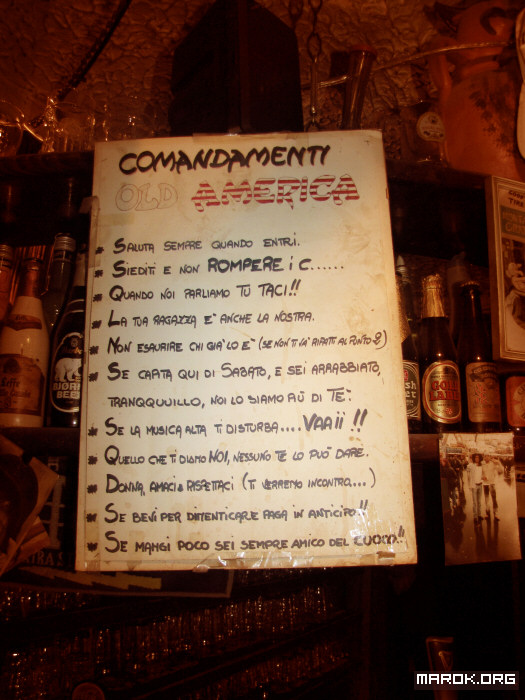 COMANDAMENTI
OLD AMERICA
SALUTA SEMPRE QUANDO ENTRI.
SIEDITI E NON ROMPERE i C......
QUANDO NOI PARLIAMO TU TACI!!
LA TUA RAGAZZA E' ANCHE LA NOSTRA.
NON ESAURIRE CHI GIA' LO E' (SE NON TI VA' RIPATTI AL PUNTO 2)
SE CAPITA QUI DI SABATO, E SEI ARRABBIATO,
TRANQUILLO, NOI LO SIAMO PIÙ DI TE.
SE LA MUSICA ALTA TI DISTURBA.... VAAII !!
QUELLO CHE TI DIAMO NOI, NESSUNO TE LO PUO' DARE.
DONNA, AMACI & RISPETTACI (TI VERREMO INCONTRO...)
SE BEVI PER DIMENTICARE PAGA IN ANTICIPO!!
SE MANGI POCO SEI SEMPRE AMICO DEL CUOCO!!
Leffe
BJØRNE BEER
GOLD
MAROK.ORG